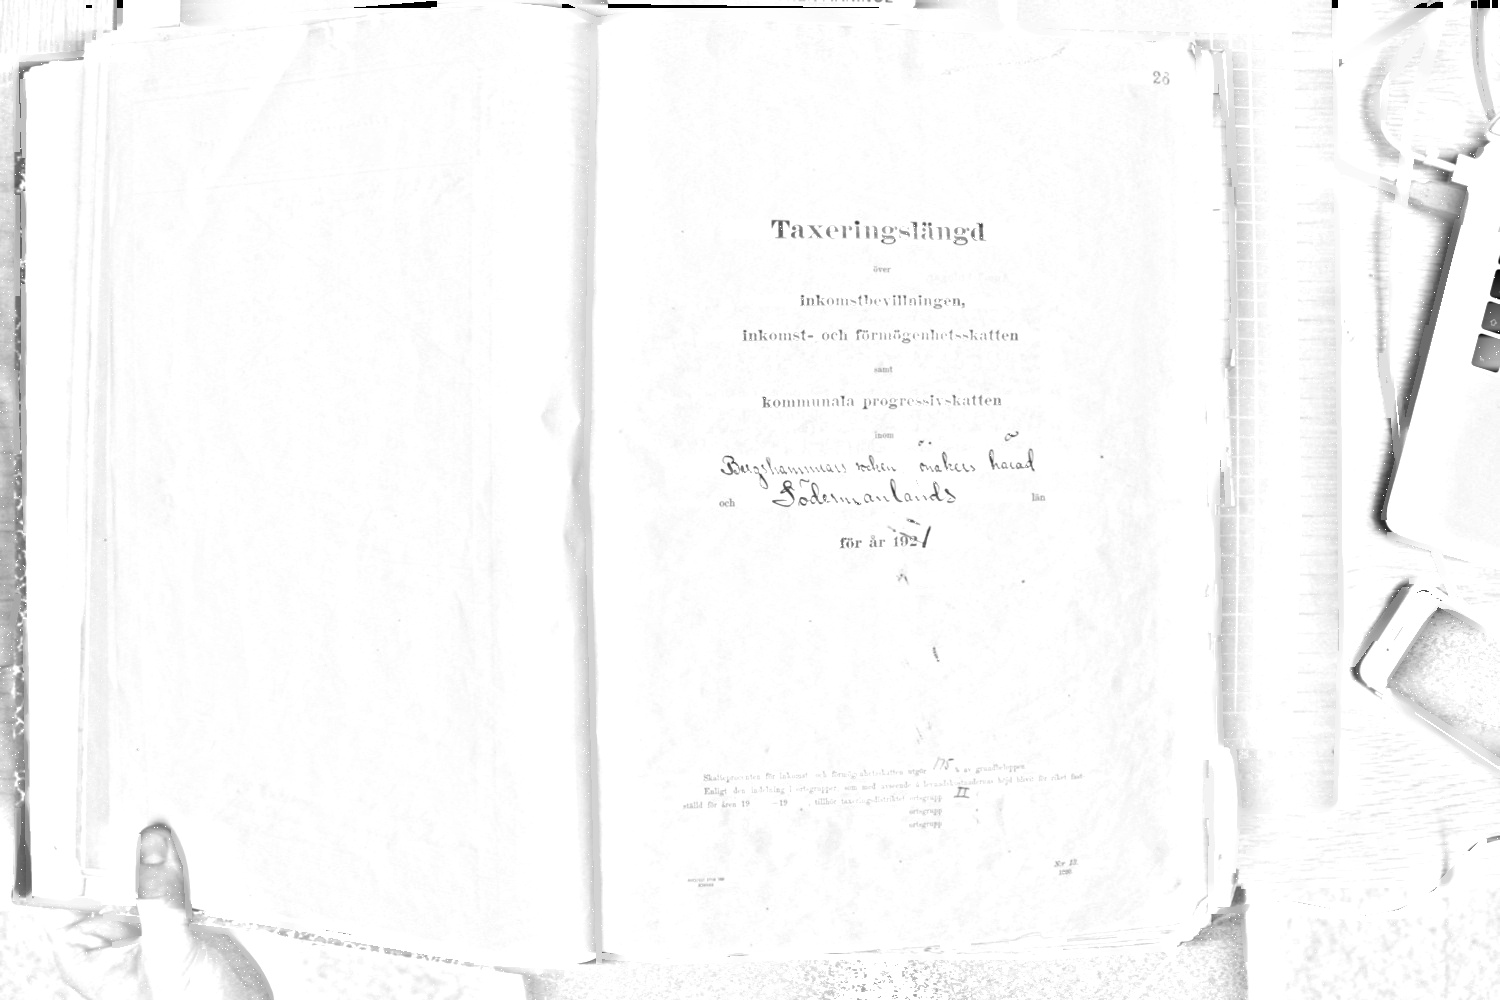 26
Taxeringslängd
över
inkomstbevillningen,
inkomst- och förmögenhetsskatten
samt
kommunala progressivskatten
inom
Bergshammars socken Önåkers härad
och Södermanlands län
för år 1921
Skatteprocenten för inkomst- och förmögenhetsskatten utgör 175 % av grundbeloppen
Enligt den indelning i ortsgrupper, som med avseende å levnadskostnadernas höjd blivit för riket fast-
ställd för åren 19 —19 , tillhör taxeringsdistriktet ortsgrupp II
ortsgrupp
ortsgrupp
Nr 13.
1920.